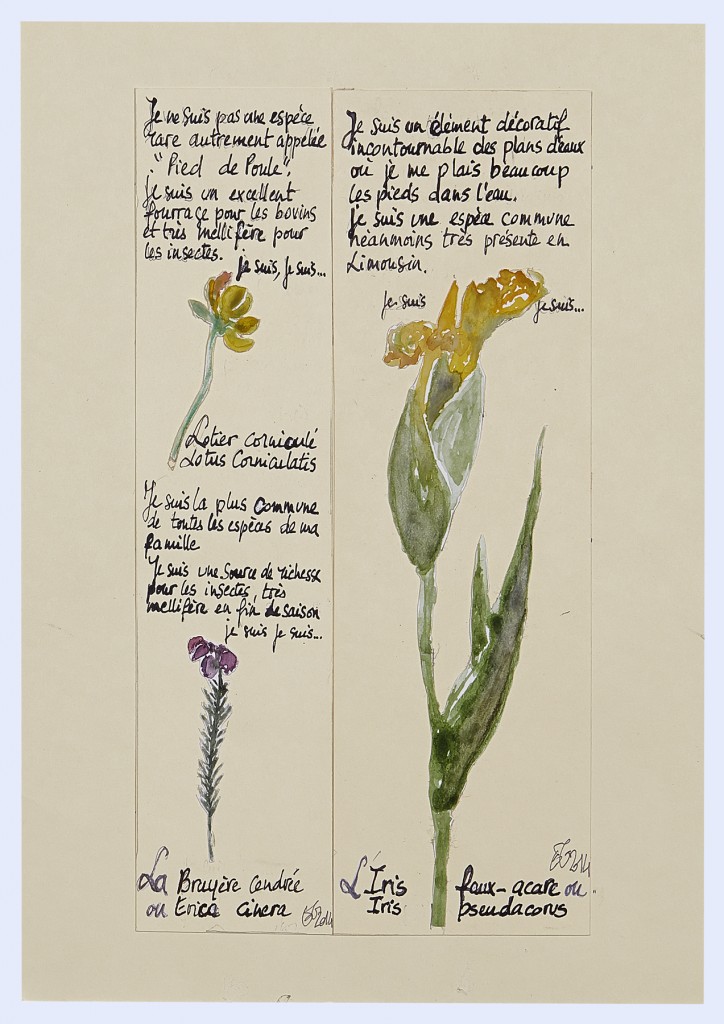 Je ne suis pas une espèce
rare autrement appelée
"Pied de Poule",
Je suis un excellent
fourrage pour les bovins
et très mellifère pour
les insectes.
je suis, je suis...
Lotier corniculé
Lotus Corniculatis
Je suis la plus commune
de toutes les espèces de ma
famille
Je suis une source de richesse
pour les insectes, très
mellifère en fin de saison
je suis je suis...
La Bruyère Cendrée
ou Erica cinera
2014
Je suis un élément décoratif
incontournable des plans d'eaux
où je me plais beaucoup
les pieds dans l'eau.
je suis une espèce commune
néanmoins très présente en
Limousin.
je suis je suis...
2014
L'Iris faux-acare ou
Iris pseudacorus